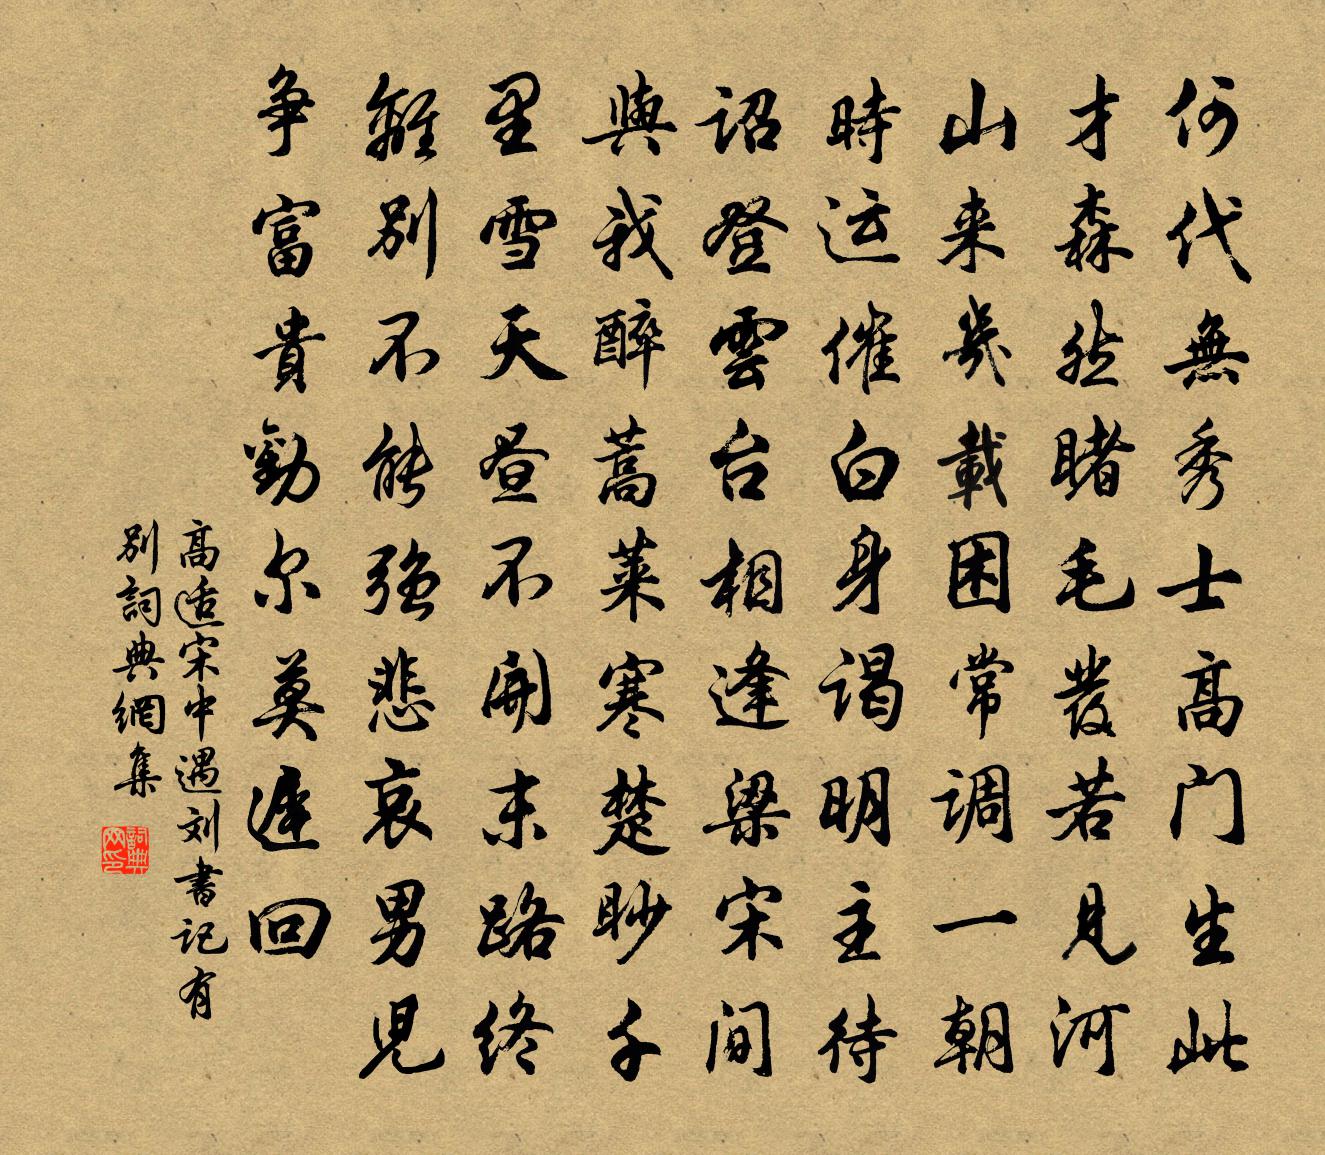 何代無秀士高门生此
才森然睹毛發若見河
山来幾載困常调一朝
時运催白身谒明主待
诏登雲台相逢梁宋间
與我醉蒿莱寒楚眇千
里雪天昼不開末路终
離别不能强悲哀男児
争富貴勸尔莫遲回
高适宋中遇刘書记有
别詞典網集
詞典网印